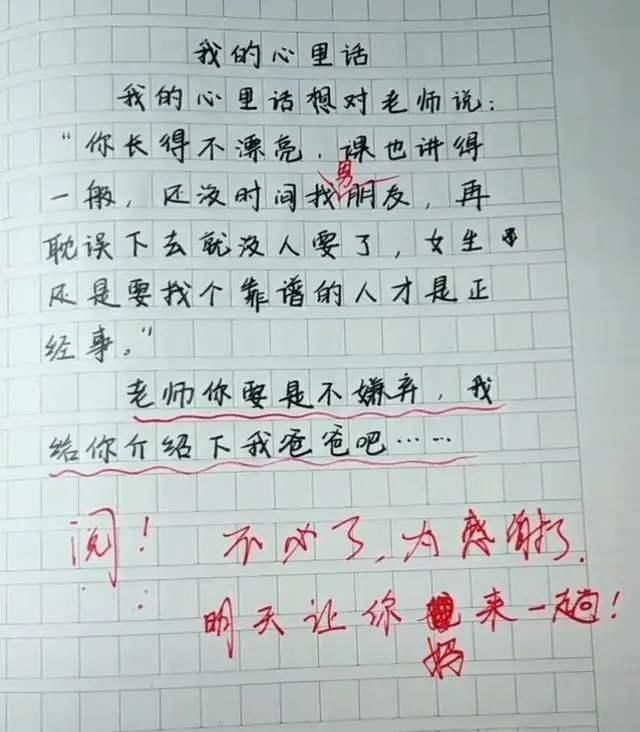 我的心里话
我的心里话想对老师说：
“你长得不漂亮，课也讲得
男
一般，还没时间找朋友，再
耽误下去就没人要了，女生
还是要找个靠谱的人才是正
经事。”
老师你要是不嫌弃，我
给你介绍下我爸爸吧……
阅！ 不必了，太感谢了。
明天让你来一趟！
妈